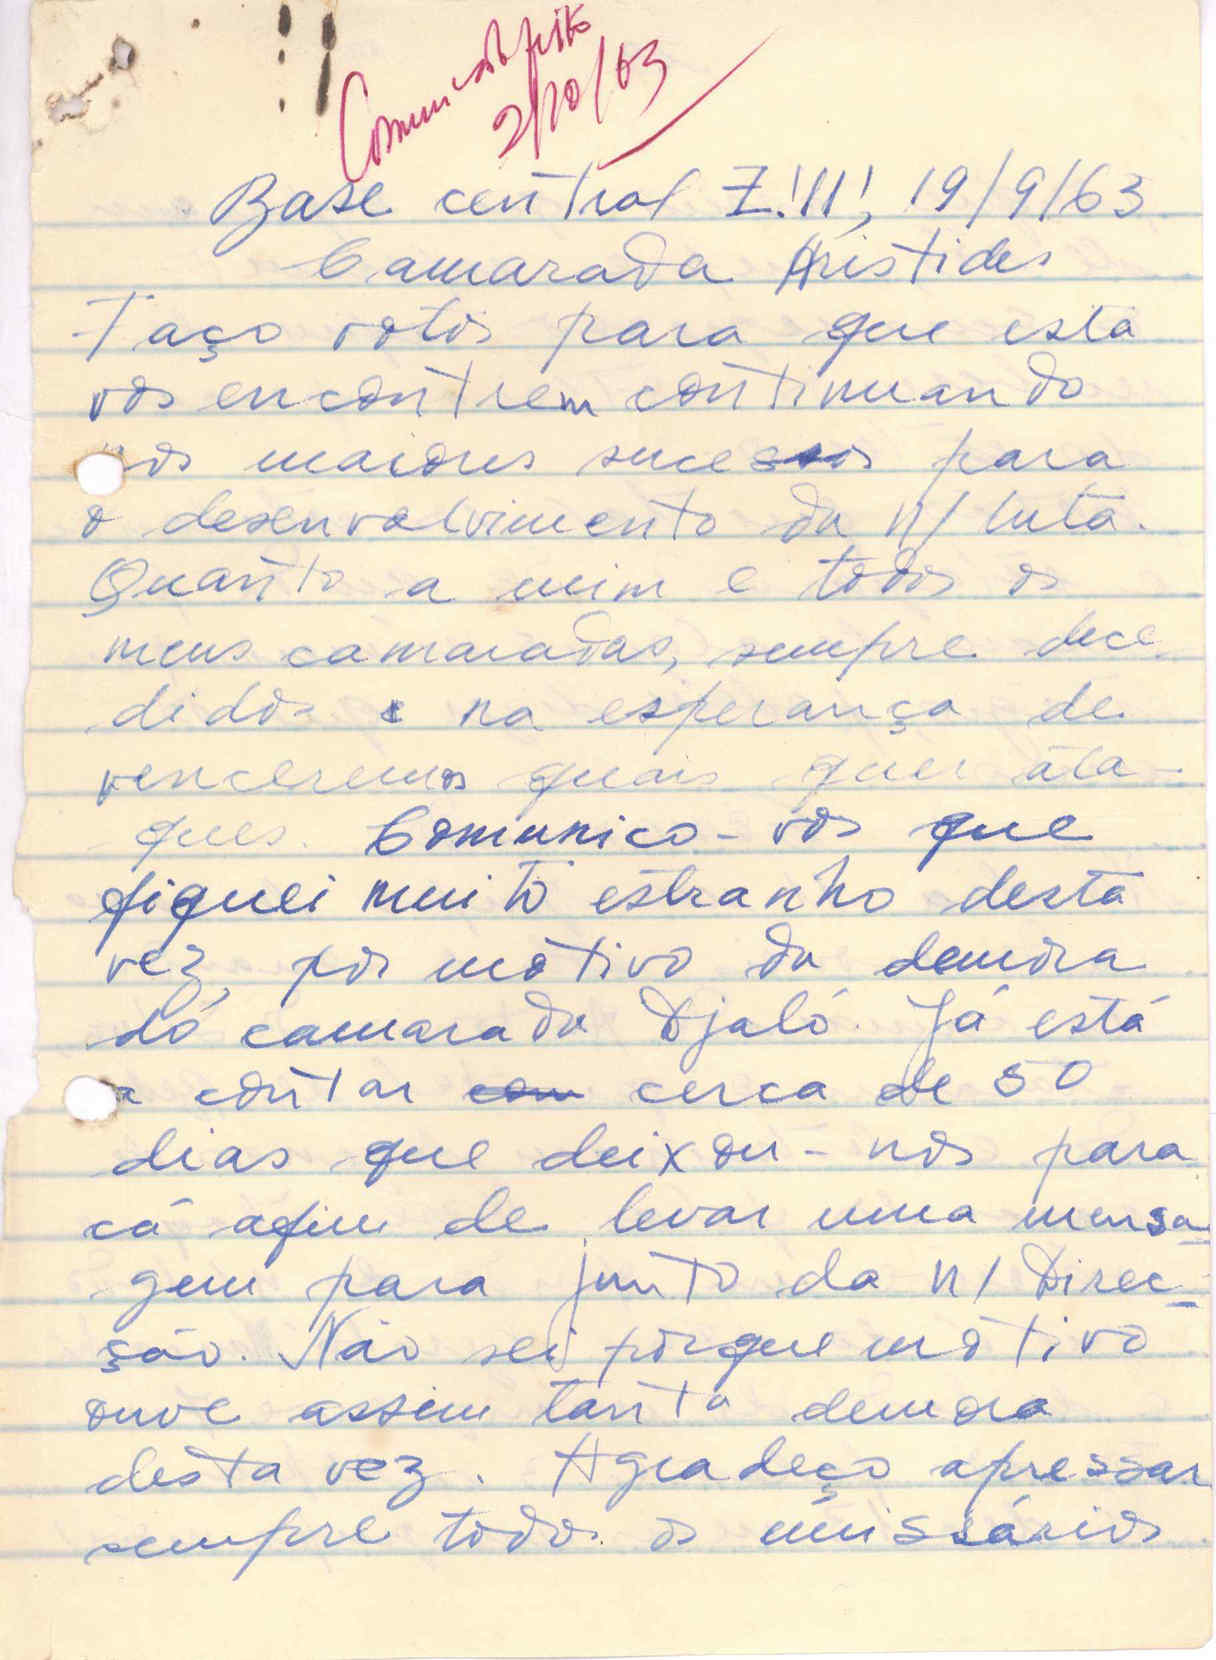 Comunicado feito
2/10/63
Base central Z.'11', 19/9/63
Camarada Aristides
Faço votos para que esta
vos encontrem continuando
nos maiores sucessos para
o desenvolvimento da n/ luta.
Quanto a mim e todos os
meus camaradas, sempre dece
didos e na esperança de
venceremos quais quer ata-
ques. Comunico-vos que
fiquei muito estranho desta
vez, por motivo da demora
do camarada Djaló. Já está
a contar cerca de 50
dias que deixou-nos para
cá afim de levar uma mensa-
gem para junto da n/ Direc-
ção. Não sei porque motivo
ouve assim tanta demora
desta vez. Agradeço apressar
sempre todos os emissários